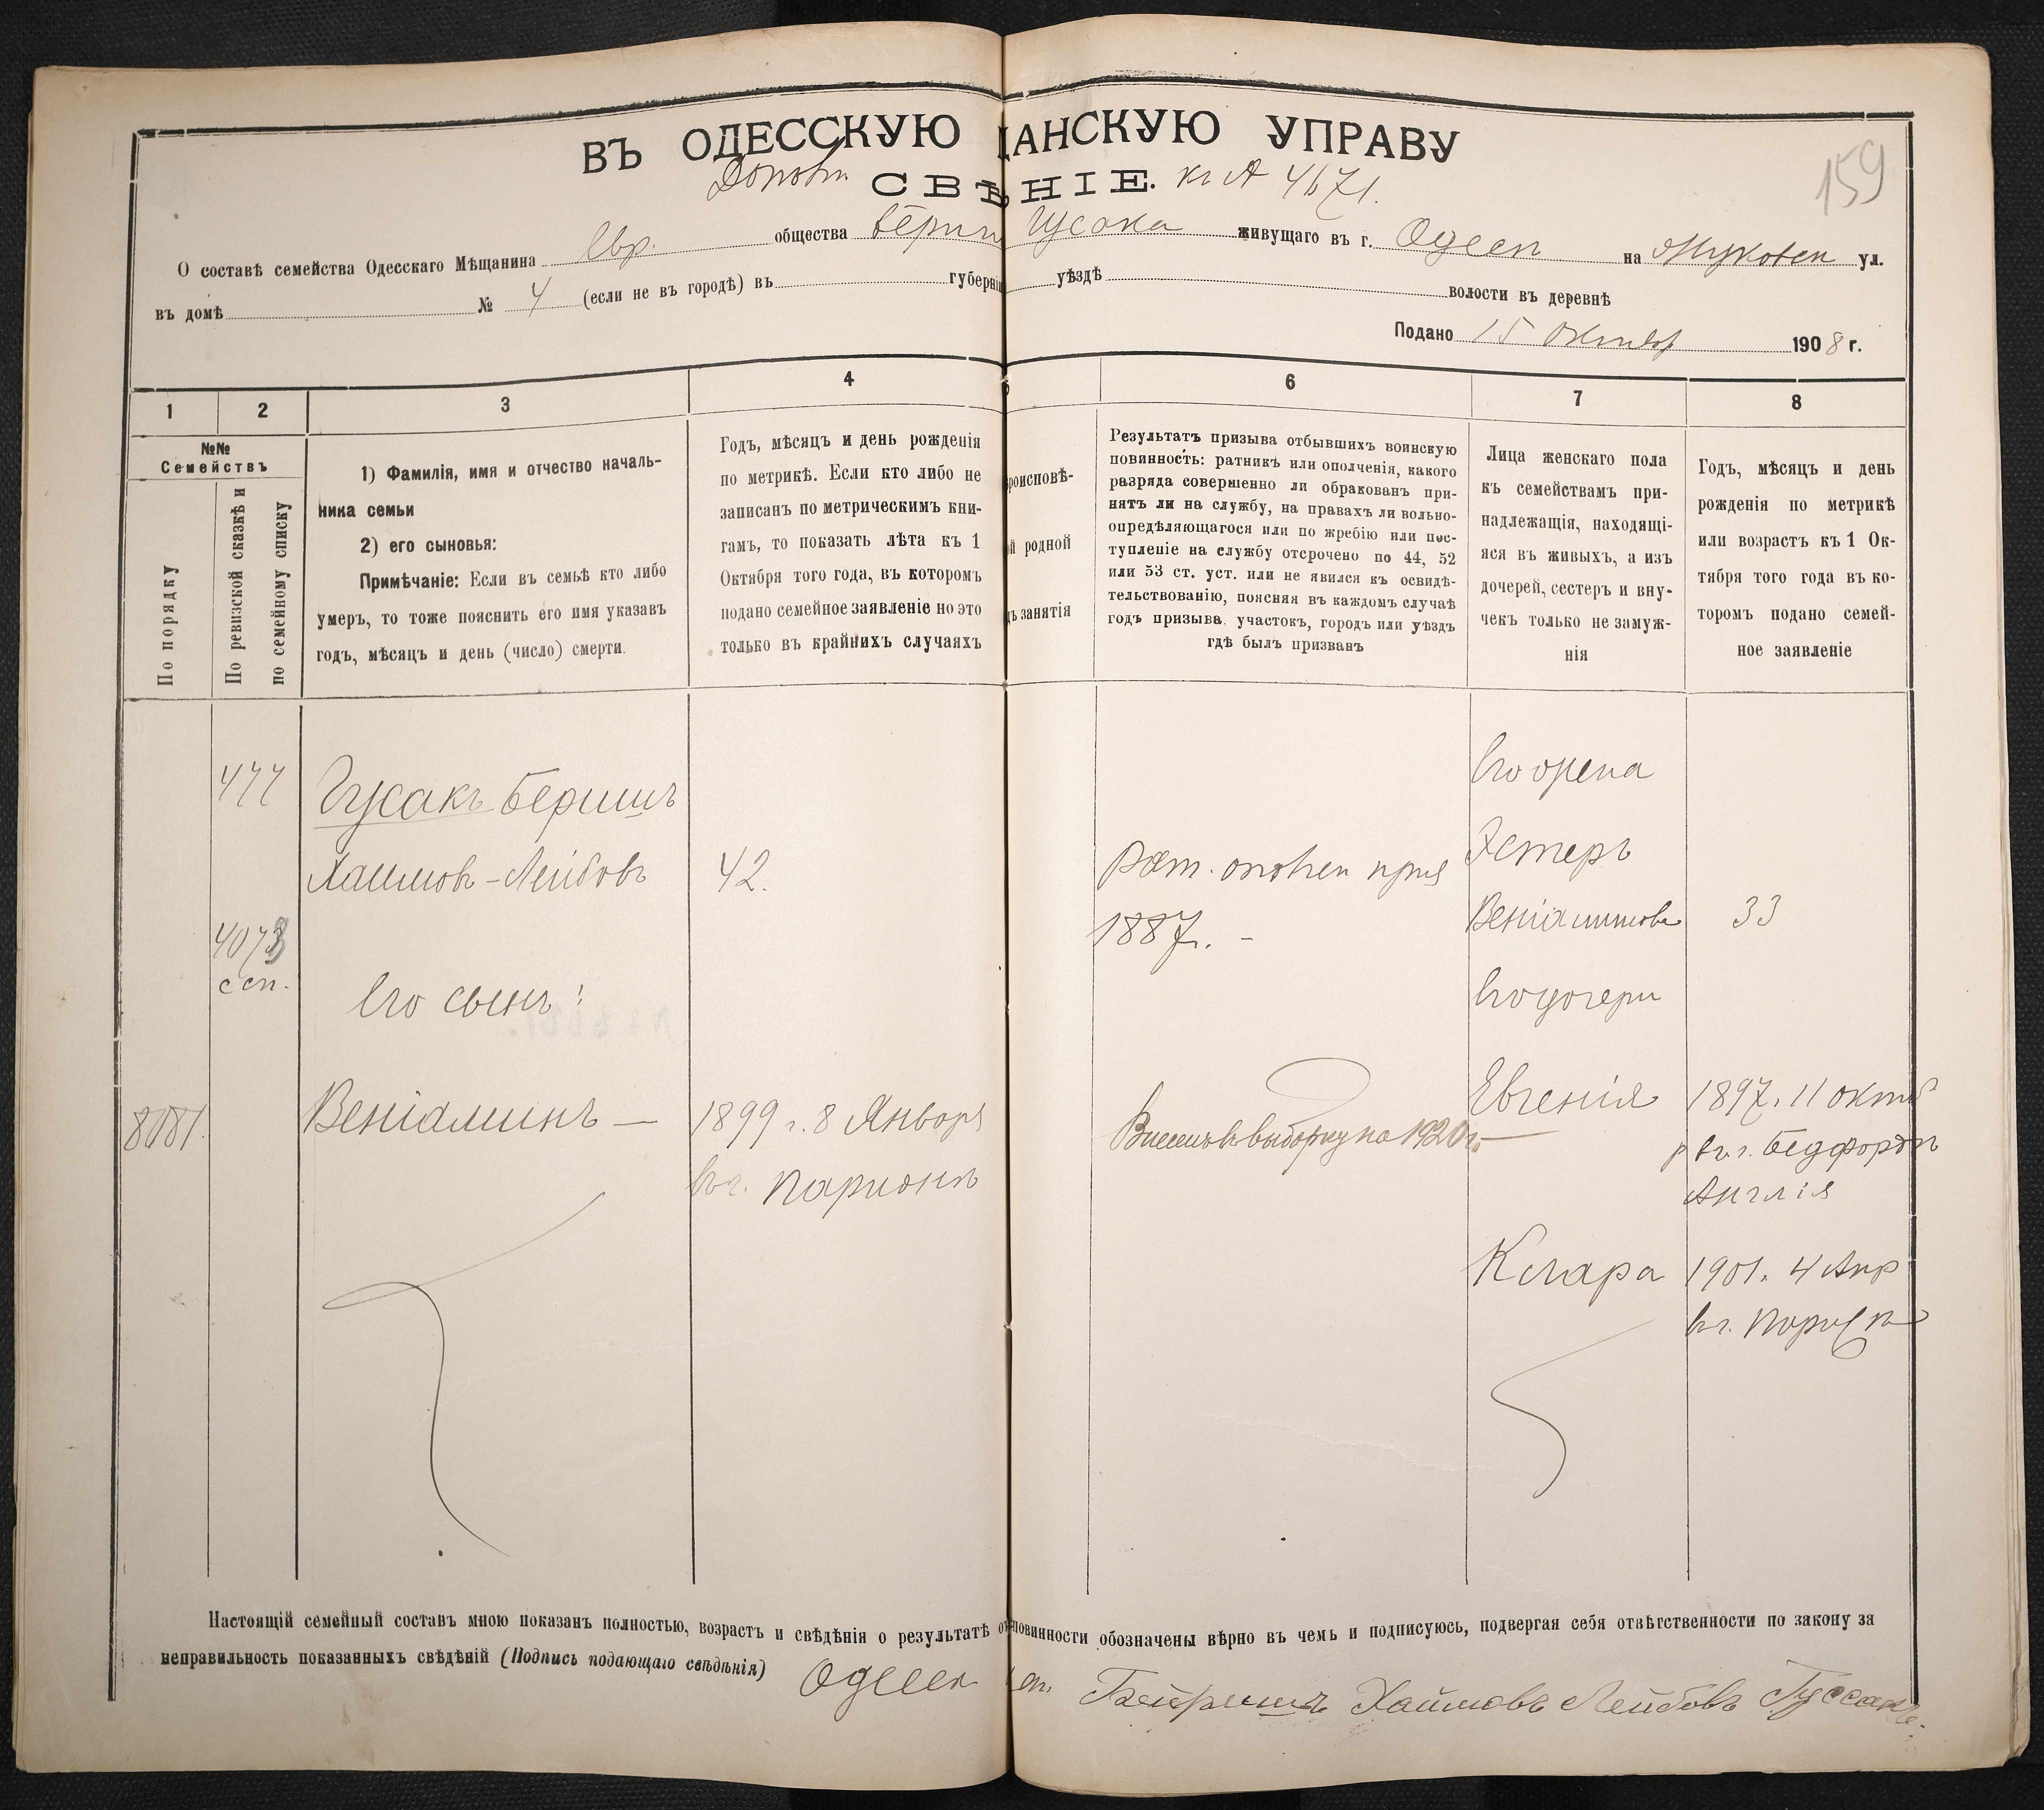 ВЪ ОДЕССКУЮ ЩАНСКУЮ УПРАВУ
СВѢНІЕ. къ № 4671.
159
О составѣ семейства Одесскаго Мѣщанина Евр. общества Бериш Гусака живущаго въ г. Одессѣ на Жуковск ул.
въ домѣ № 4 (если не въ городѣ) въ губерніи уѣздѣ волости въ деревнѣ
Подано 15 Октября 1908 г.
1 2 3 4 6 7 8
№№
Семействъ
По порядку
По ревизской сказкѣ и
по семейному списку
1) Фамилія, имя и отчество началь-
ника семьи
2) его сыновья:
Примѣчаніе: Если въ семьѣ кто либо
умеръ, то тоже пояснить его имя указавъ
годъ, мѣсяцъ и день (число) смерти.
Годъ, мѣсяцъ и день рожденія
по метрикѣ. Если кто либо не
записанъ по метрическимъ кни-
гамъ, то показать лѣта къ 1
Октября того года, въ которомъ
подано семейное заявленіе но это
только въ крайнихъ случаяхъ
роисповѣ-
й родной
ъ занятія
Результатъ призыва отбывшихъ воинскую
повинность: ратникъ или ополченія, какого
разряда совершенно ли обракованъ при-
нятъ ли на службу, на правахъ ли вольно-
опредѣляющагося или по жребію или пос-
тупленіе на службу отсрочено по 44, 52
или 53 ст. уст. или не явился къ освидѣ-
тельствованію, поясняя въ каждомъ случаѣ
годъ призыва. участокъ, городъ или уѣздъ
гдѣ былъ призванъ
Лица женскаго пола
къ семействамъ при-
надлежащія, находящі-
яся въ живыхъ, а изъ
дочерей, сестеръ и вну-
чекъ только не замуж-
нія
Годъ, мѣсяцъ и день
рожденія по метрикѣ
или возрастъ къ 1 Ок-
тября того года въ ко-
торомъ подано семей-
ное заявленіе
477 Гусакъ Беришъ
Хаимовъ-Лейбовъ 42.
4073
ссп.
Его сынъ:
8081. Веніаминъ — 1899 г. 8 Января
въ г. Парижѣ
Рат. ополчен приз
1887 г. -
Внесенъ въ выборку на 1920 г.
Его жена
Эстеръ
Веніаминова 33
Его дочери
Евгенія — 1897. 11 октяб
р въ г. Бедфордѣ
Англія
Клара 1901. 4 Апр
въ г. Парижѣ
Настоящій семейный составъ мною показанъ полностью, возрастъ и свѣдѣнія о результатѣ от повинности обозначены вѣрно въ чемъ и подписуюсь, подвергая себя отвѣтственности по закону за
неправильность показанныхъ свѣдѣній (Подпись подающаго свѣдѣнія) Одесск Беришъ Хаймовъ Лейбовъ Гуссакъ.